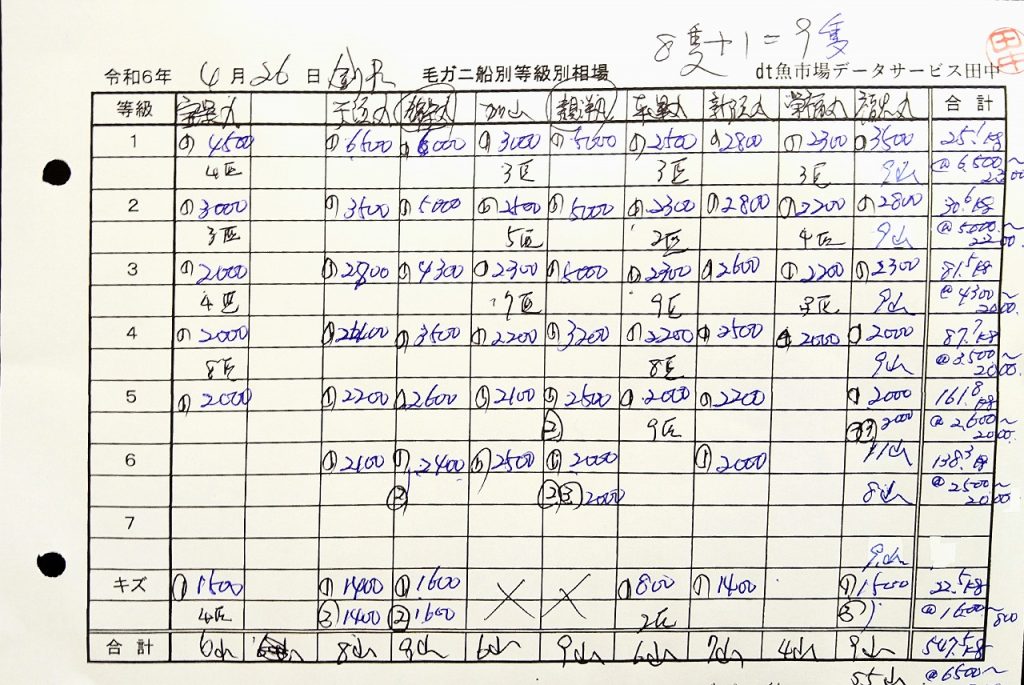 8隻+1=9隻
令和6年 4月26日 毛ガニ船別等級別相場 dt魚市場データサービス田中
等級 合計
1 ①4500 ①6500 ①6000 ①3000 ①5600 ①2500 ①2800 ①2300 ①3500 25.1kg
4匹 3匹 3匹 3匹 9山 @6,500~2300
2 ①3000 ①3500 ①5000 ①2500 ①5000 ①2300 ①2800 ①2200 ①2800 30.6kg
3匹 5匹 2匹 4匹 9山 @5000~2200
3 ①2000 ①2800 ①4300 ①2300 ①5000 ①2300 ①2600 ①2200 ①2300 81.5kg
4匹 9匹 9匹 9山 @4300~2000
4 ①2000 ①2400 ①3500 ①2200 ①3200 ①2200 ①2500 ①2000 ①2000 87.7kg
8匹 8匹 9山 @3,500~2000
5 ①2000 ①2200 ①2600 ①2100 ①2500 ①2000 ①2200 ①2000 161.8kg
② 9匹 2000 @2,600~2000
6 ①2100 ①2400 ①2500 ①2000 ①2000 11山 138.3kg
③ ②③2000 8山 @2500~2000
7
9山
キズ ①1500 ①1400 ①1600 × × ①800 ①1400 ①1500 22.5kg
4匹 ③1400 ②1600 2匹 ③ @1600~800
合計 6山 8山 8山 6山 9山 6山 7山 4山 9山 547.5kg
55山 @6500~